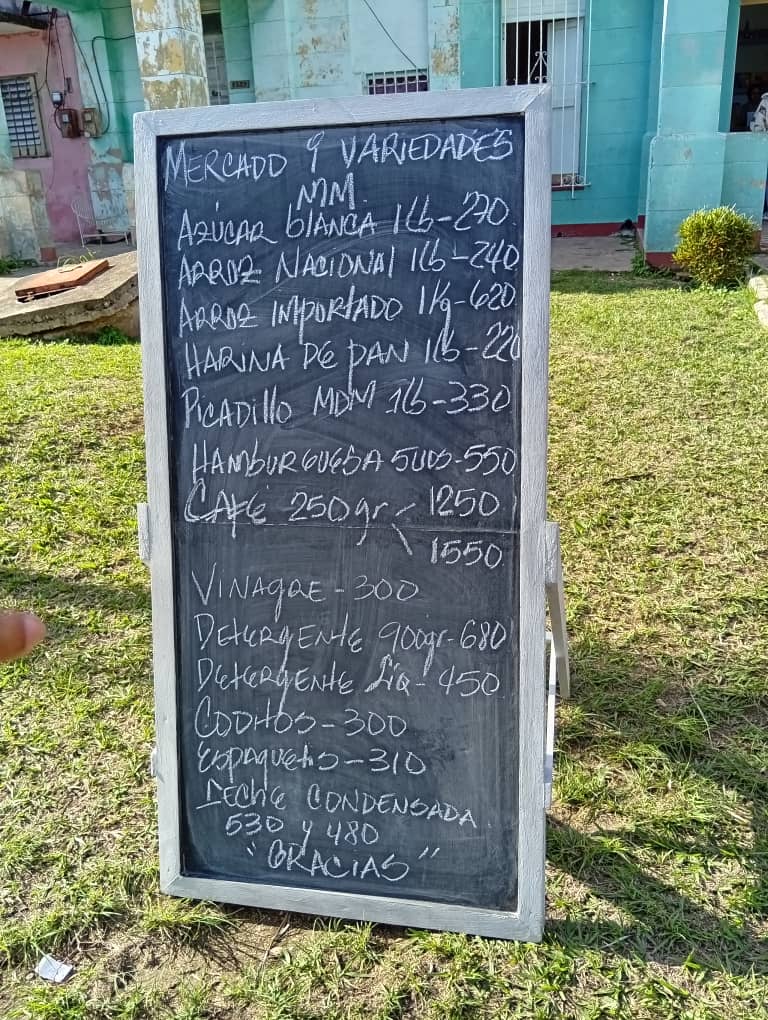 MERCADO Y VARIEDADES
MM.
AZÚCAR blANCA 1Lb-270.
ARROZ NACIONAl 1Lb-240
ARROZ IMPORTADO 1Kg-620
HARINA DE PAN 1Lb-220
PiCADillo MDM 1Lb-330
HAMBURGUESA 5UDS-550
CAFÉ 250gr 1250
1550
VINAGRE-300
DETERGENTE 900gr-680
DETERGENTE Liq-450
CODITOS-300
ESPAQUETIS-310
LECHE CONDENSADA
530 y 480
"GRACIAS"